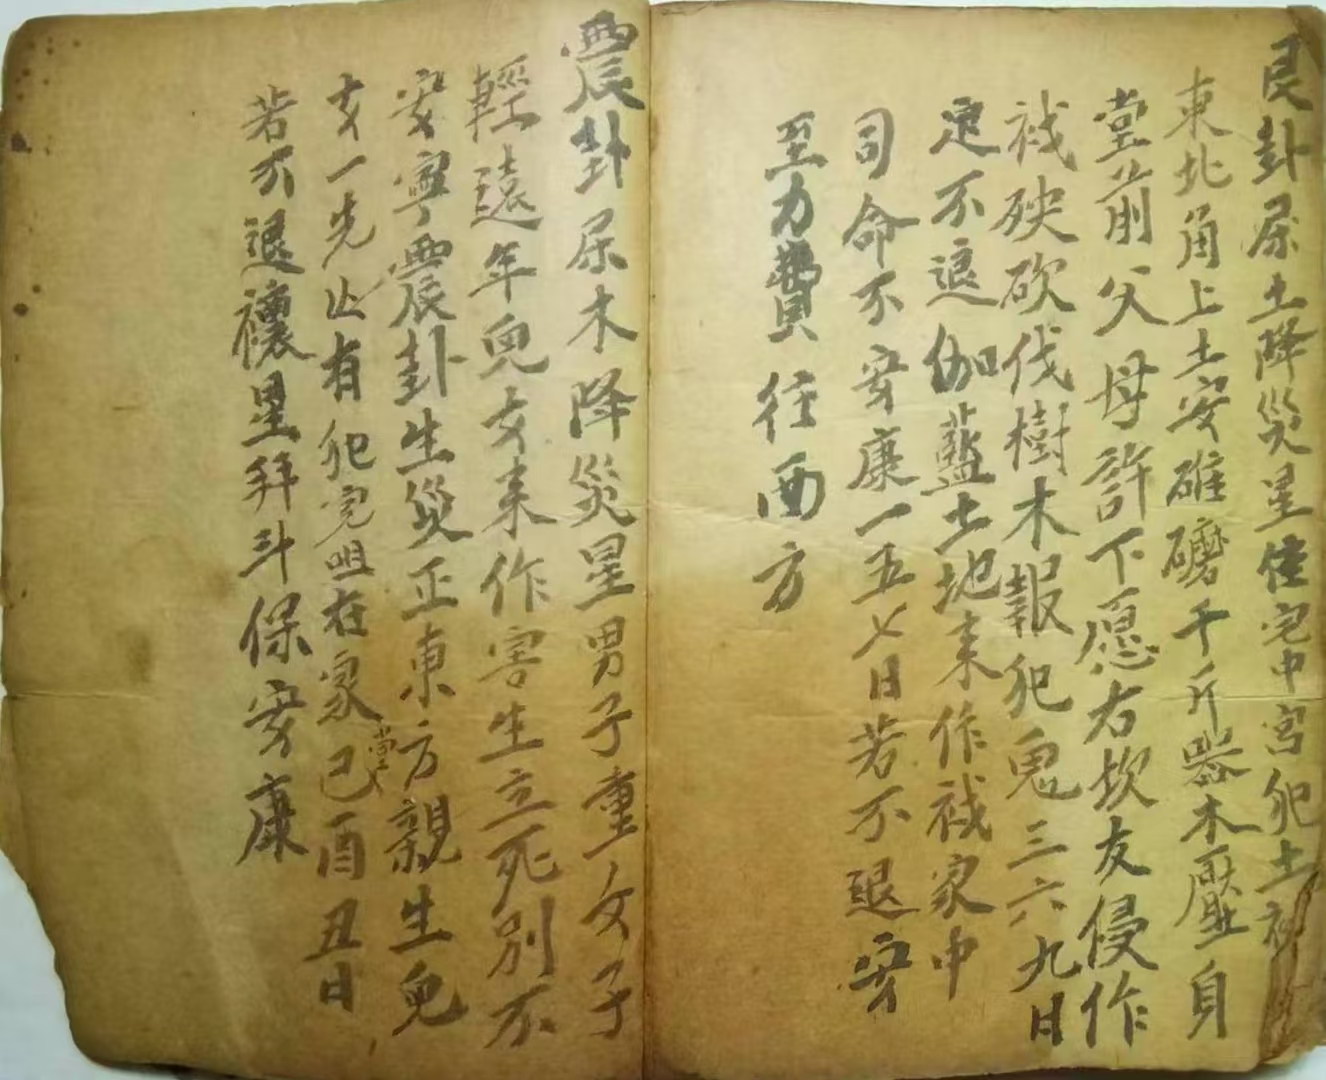 艮卦屬土降災星住宅中宮犯土神
東北角上土安碓磨千斤器木壓身
堂前父母許下愿右坎友侵作
祟殃砍伐樹木報犯鬼三六九日
定不退伽藍土地来作祟家中
司命不安康一五七日若不退安
至力費往西方
震卦屬木降災星男子重女子
輕遠年鬼女来作害生立死別不
安寧震卦生災正東方親生兒
女一先亾有犯咒咀在家堂巳酉丑日
若不退禳星拜斗保安康